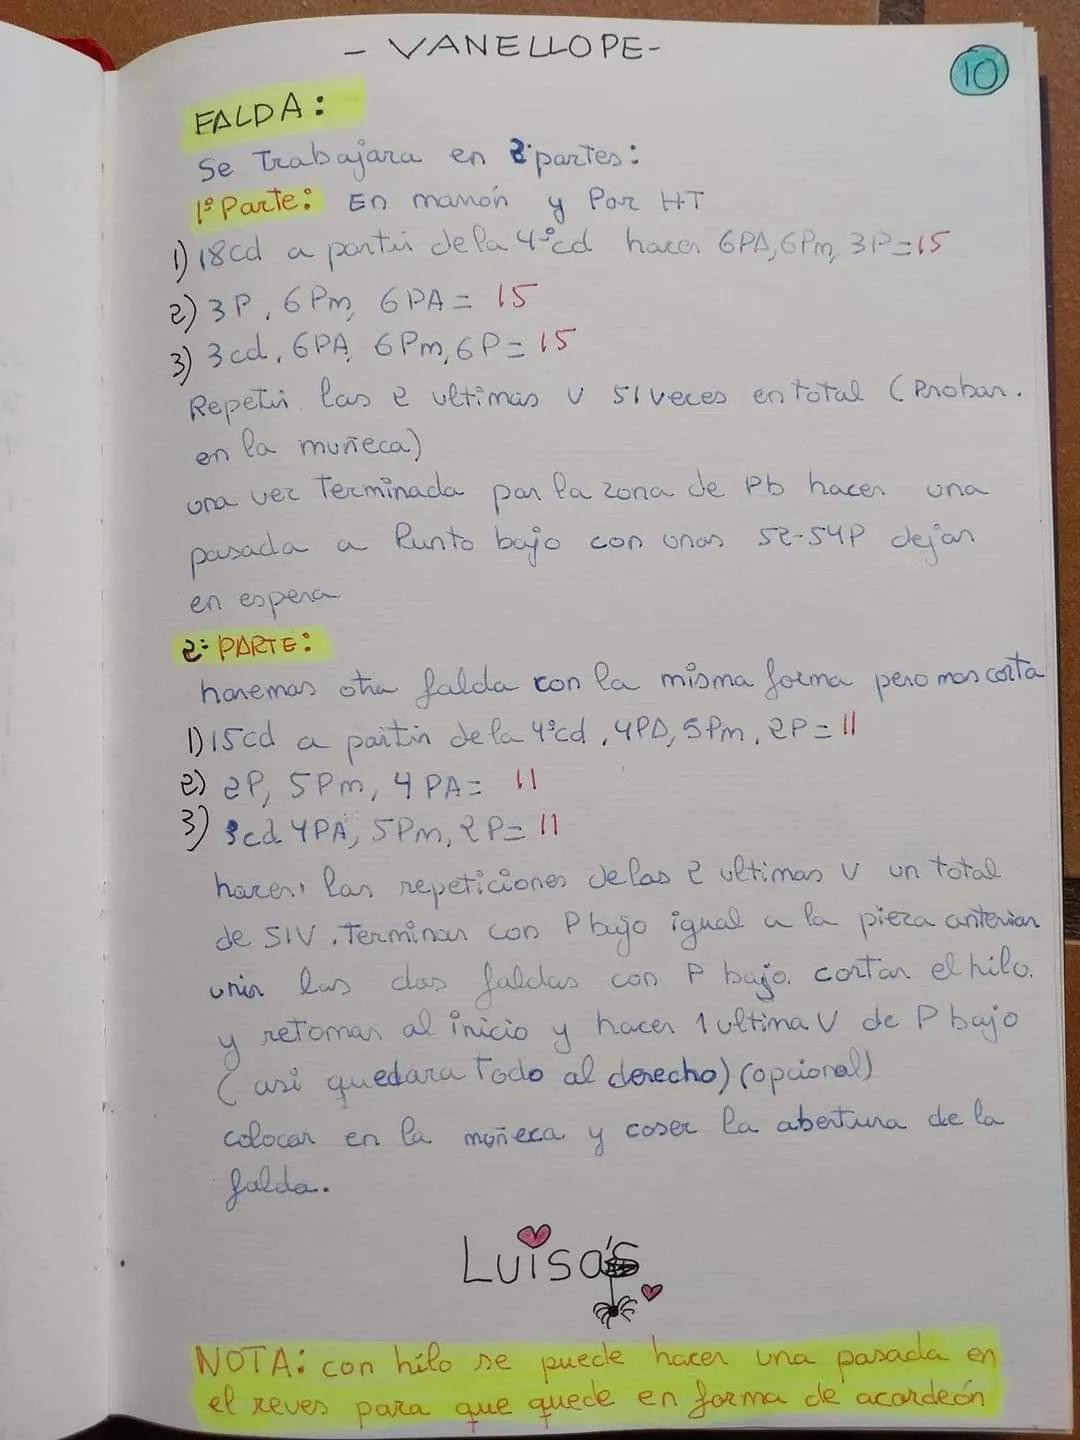 - VANELLOPE-
10
FALDA:
Se Trabajara en 2 partes:
1º Parte: En marrón y Por HT
1) 18cd a partir de la 4ºcd hacer 6PA, 6Pm, 3P=15
2) 3P, 6Pm, 6PA= 15
3) 3cd, 6PA, 6Pm, 6P= 15
Repetir las 2 ultimas V 51 veces en total (Probar.
en la muñeca)
una vez Terminada por la zona de Pb hacer una
pasada a Punto bajo con unos 52-54P dejar
en espera
2ª PARTE:
haremos otra falda con la misma forma pero mas corta
1) 15cd a partir de la 4ºcd, 4PA, 5Pm, 2P= 11
2) 2P, 5Pm, 4PA= 11
3) 3cd 4PA, 5Pm, 2P= 11
hacer las repeticiones de las 2 ultimas V un total
de 51V. Terminar con P bajo igual a la pieza anterior
unir las dos faldas con P bajo. cortar el hilo.
y retomar al inicio y hacer 1 ultima V de P bajo
(asi quedara Todo al derecho) (opcional)
colocar en la muñeca y coser la abertura de la
falda.
Luisa's
NOTA: con hilo se puede hacer una pasada en
el reves para que quede en forma de acordeón